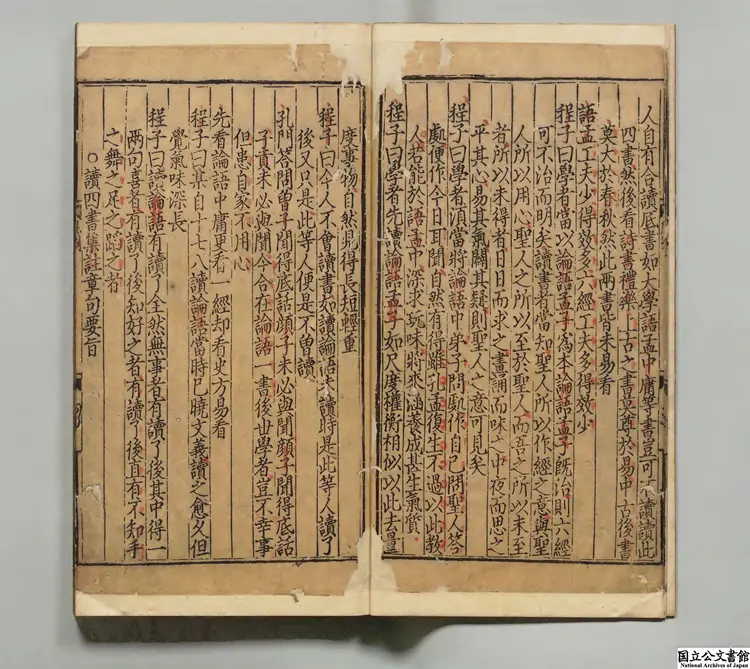 人自有合讀底書如大學語孟中庸等書豈可不讀讀此
四書然後看詩書禮樂上古之書莫尊於易中古後書
莫大於春秋然此两書皆未易看
語孟工夫少得效多六經工夫多得效少
程子曰學者當以論語孟子為本論語孟子既治則六經
可不治而明矣讀書者當知聖人所以作經之意與聖
人所以用心聖人之所以至於聖人而吾之所以未至
者所以未得者日日而求之晝誦而味之中夜而思之
平其心易其氣闕其疑則聖人之意可見矣
程子曰學者湏當將論語中弟子問處作自己問聖人答
處便作今日耳聞自然有得雖孔孟復生不過以此教
人若能於語孟中深求玩味將來涵養成甚生氣質
程子曰學者先讀論語孟子如尺度權衡相似以此去量
度事物自然見得長短輕重
程子曰今人不會讀書如讀論語未讀時是此等人讀了
後又只是此等人便是不曾讀
孔門答問曾子聞得底話顔子未必與聞顔子聞得底話
子貢未必與聞今合在論語一書後世學者豈不幸事
但患自家不用心
先看論語中庸更看一經却看史方易看
程子曰某自十七八讀論語當時已曉文義讀之愈久但
覺氣味深長
程子曰讀論語有讀了全然無事者有讀了後其中得一
两句喜者有讀了後知好之者有讀了後直有不知手
之舞之足之蹈之者
○讀四書集註章句要旨
国立公文書館
National Archives of Japan